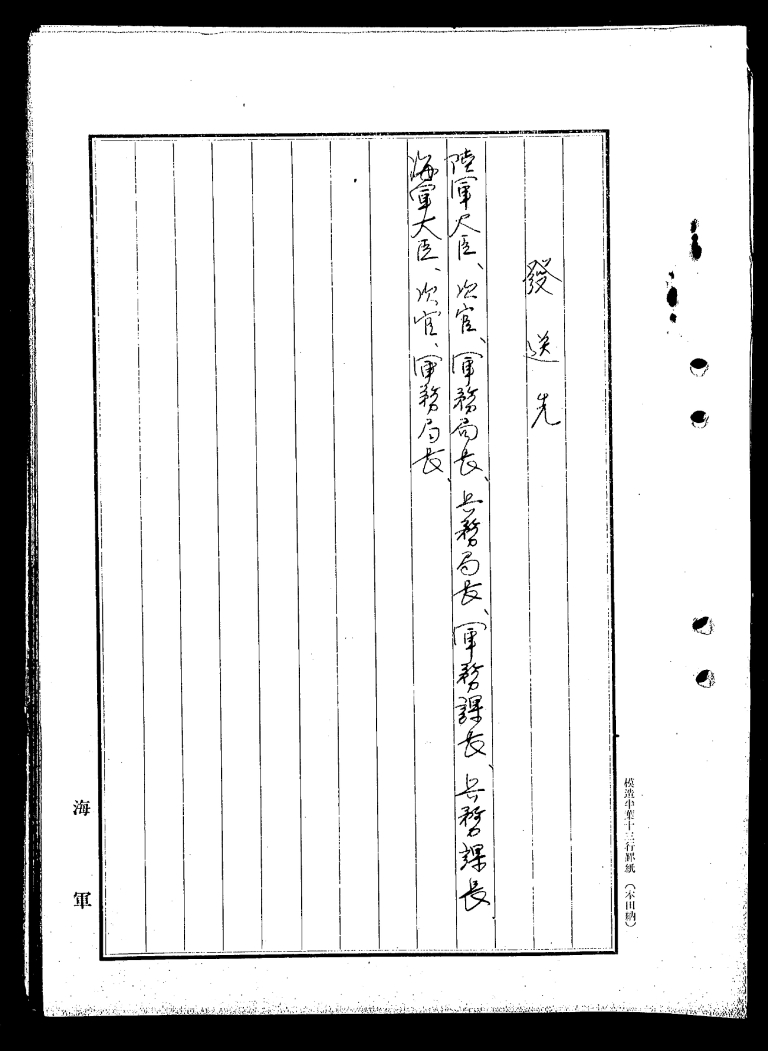 發送先
陸軍大臣、次官、軍務局長、兵務局長、軍務課長、兵務課長
海軍大臣、次官、軍務局長、
海軍
模造半葉十三行罫紙(本田納)